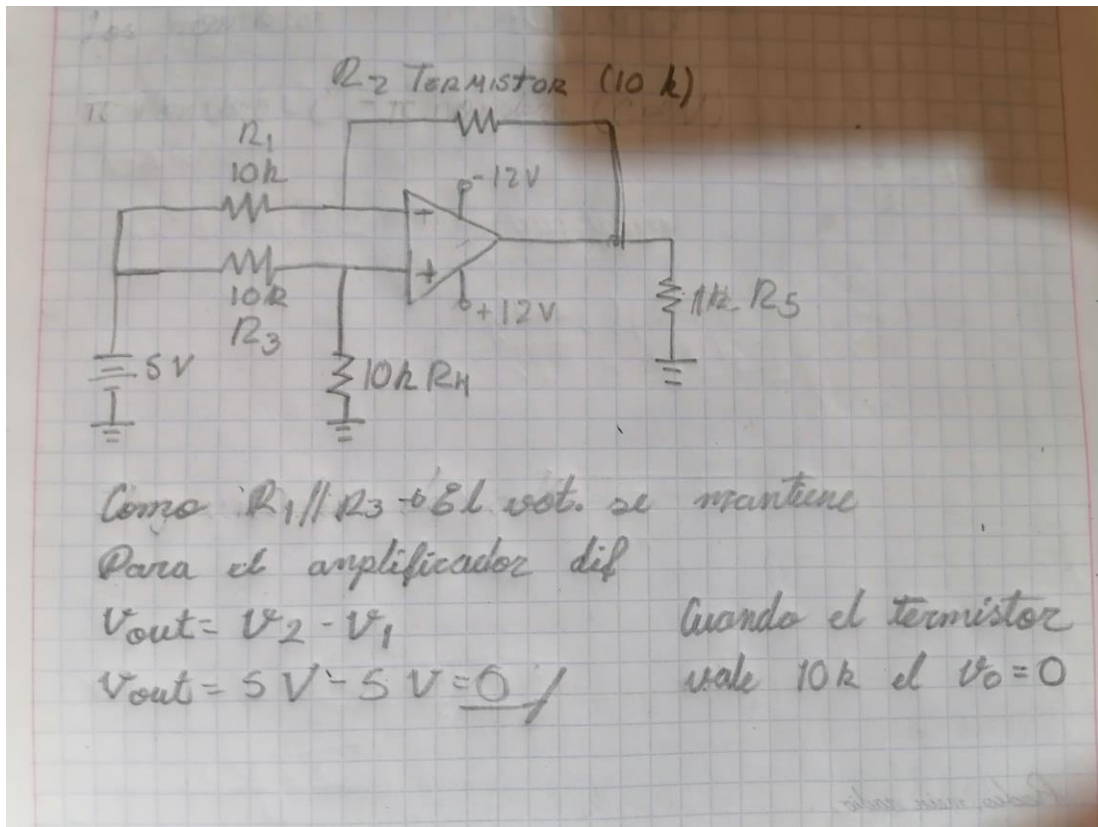 R2 TERMISTOR (10 k)
R1
10k
-12V
-
+
10k
R3
+12V
1k R5
5V
10k R4
Como R1//R3 → El vot. se mantiene
Para el amplificador dif
Vout = V2 - V1
Vout = 5V - 5V = 0
Cuando el termistor
vale 10k el Vo = 0